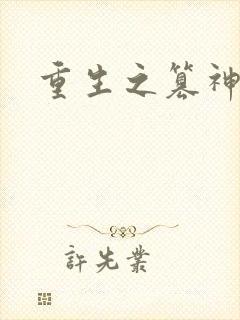 重生之篡神
許先業